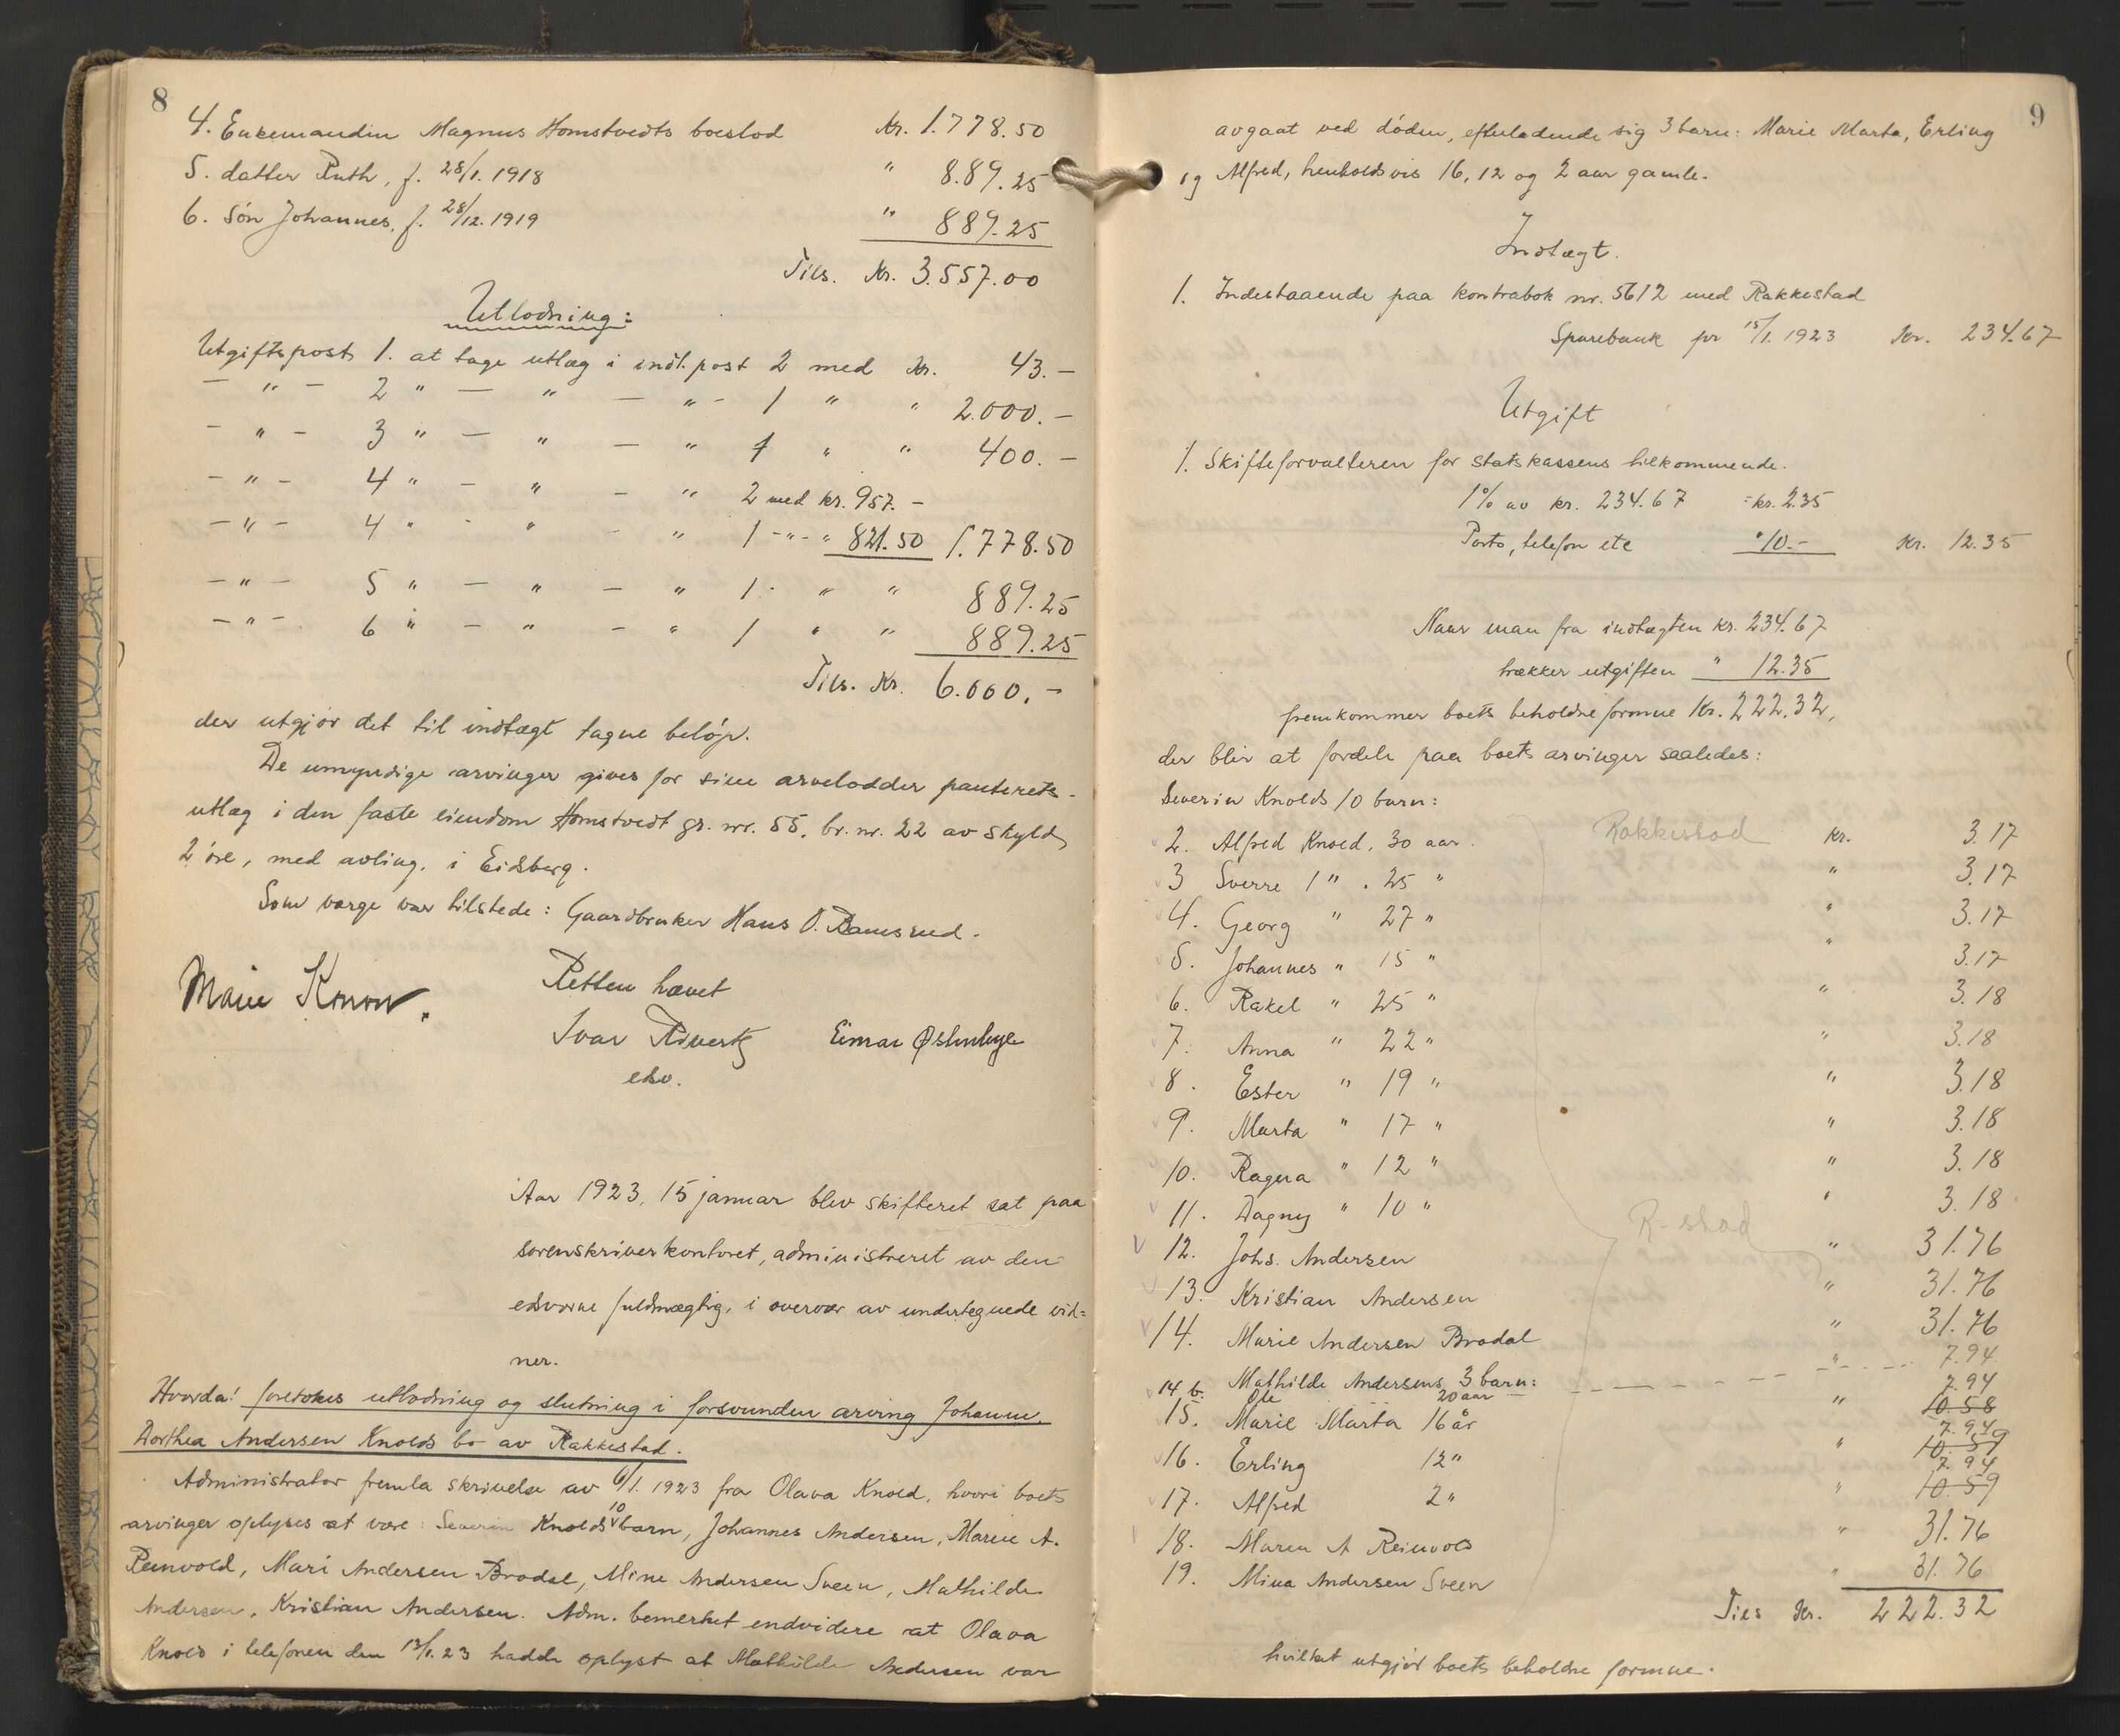 8
4. Enkemanden Magnus Homstvedts boeslod Kr. 1.778.50
5. datter Ruth, f. 28/1. 1918 " 8.89.25
6. Søn Johannes, f. 28/12. 1919 " 889.25
Tils. Kr. 3.557.00
Utlodning:
Utgiftspost 1. at tage utlæg i indt. post 2 med Kr. 43.—
— " — 2 " — " — " - 1 " " 2.000.—
— " — 3 " — " — " 1 " " 400.—
— " — 4 " — " — " 2 med kr. 957.—
— " — 4 " - " - " 1 - " - " 821.50 1.778.50
— " — 5 " — " — " 1 " " 889.25
— " — 6 " — " — " 1 " " 889.25
Tils. Kr. 6.000.—
der utgjør det til indtægt tagne beløp.
De umyndige arvinger gives for sine arvelodder panterets-
utlæg i den faste eiendom Homstvedt gr. nr. 55, br. nr. 22 av skyld
2 øre, med avling, i Eidsberg.
Som værge var tilstede: Gaardbruker Hans O. Ramsrud.
Retten hævet
Marie Konow.
Ivar Sivertz Eimar Østenbye
edsv.
Aar 1923, 15 januar blev skifteret sat paa
sorenskriverkontoret, administreret av den
edsvorne fuldmægtig, i overvær av undertegnede vid=
ner.
Hvorda! foretokes utlodning og slutning i forsvunden arving Johanne
Dorthea Andersen Knolds bo av Rakkestad.
Administrator fremla skrivelse av 6/1. 1923 fra Olava Knold, hvori boets
arvinger oplyses at være: Severin Knolds 10 barn, Johannes Andersen, Maren A.
Reinvold, Mari Andersen Brodal, Mina Andersen Sveen, Mathilde
Andersen, Kristian Andersen. Adm. bemerket endvidere at Olava
Knold i telefonen den 13/1. 23 hadde oplyst at Mathilde Andersen var
9
avgaat ved døden, efterladende sig 3 barn: Marie Marta, Erling
og Alfred, henholdsvis 16, 12 og 2 aar gamle.
Indtægt.
1. Indestaaende paa kontrabok nr. 5612 med Rakkestad
Sparebank pr 15/1. 1923 Kr. 234.67
Utgift
1. Skifteforvalteren for statskassens tilkommende.
1% av kr. 234.67 = kr. 2.35
Porto, telefon etc " 10.- Kr. 12.35
Naar man fra indtægten kr. 234.67
trækker utgiften " 12.35
fremkommer boets beholdne formue Kr. 222.32,
der blir at fordele paa boets arvinger saaledes:
Severin Knolds 10 barn:
2. Alfred Knold, 30 aar. Rakkestad kr. 3.17
3 Sverre " 25 " " 3.17
4. Georg " 27 " " 3.17
5. Johannes " 15 " " 3.17
6. Rakel " 25 " " 3.18
7. Anna " 22 " " 3.18
8. Ester " 19 " " 3.18
9. Marta " 17 " " 3.18
10. Ragna " 12 " " 3.18
11. Dagny " 10 " " 3.18
R-stad
12. Johs. Andersen " 31.76
13. Kristian Andersen " 31.76
14. Marie Andersen Brodal " 31.76
14 b. Mathilde Andersens 3 barn: " 7.94
Ole 20 aar
15. Marie Marta 16 år " 10.58 7.94
16. Erling 12 " " 10.59 7.94
17. Alfred 2 " " 10.59 7.94
18. Maren A Reinvold " 31.76
19. Mina Andersen Sveen " 31.76
Tils Kr. 222.32
hvilket utgjør boets beholdne formue.